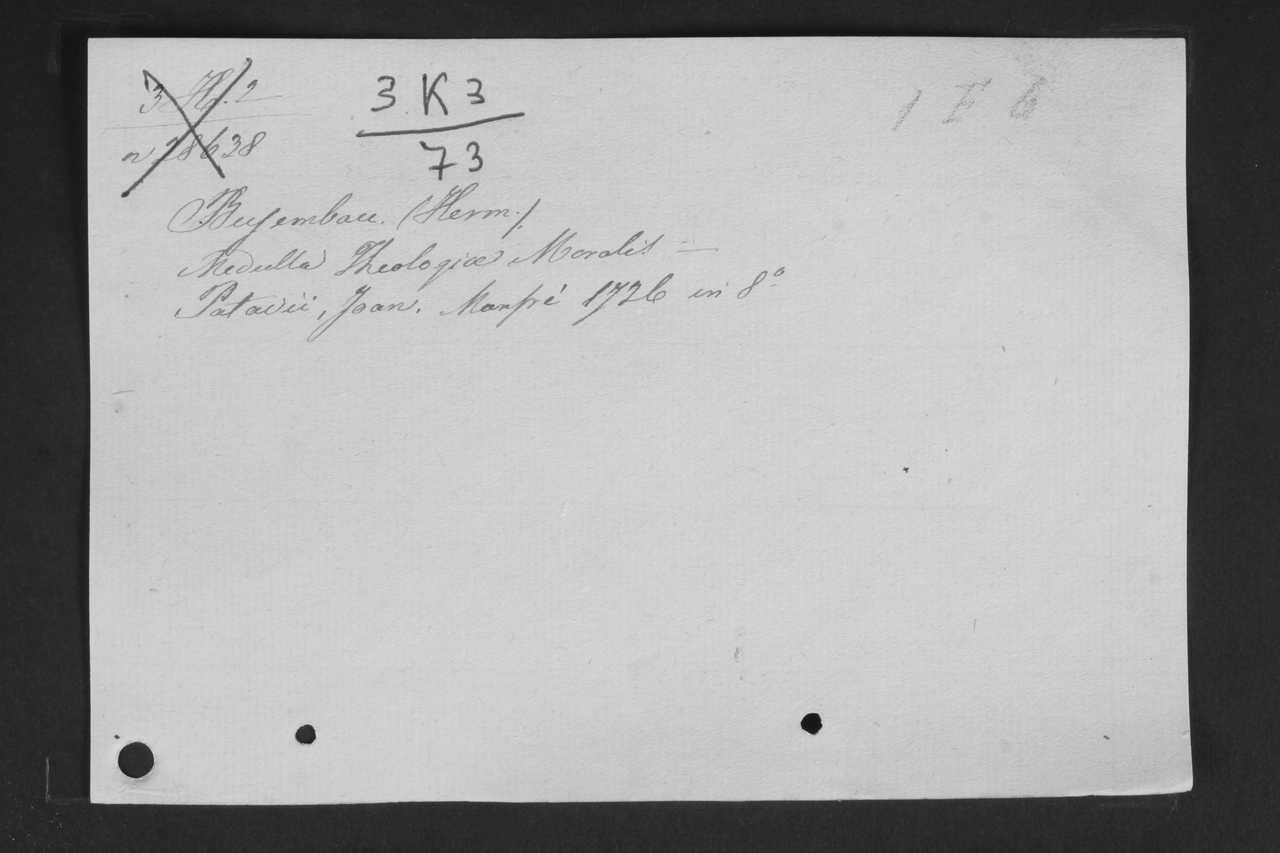 3 H. 2
n 28638
3 K 3
73
1 F 6
Busembau. (Herm.)
Medulla Theologiæ Moralis —
Patavii, Joan. Manfré 1726 in 8º